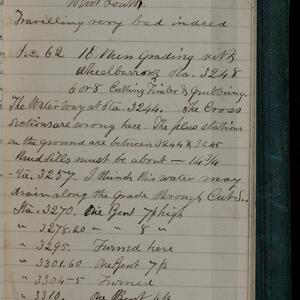 Went South
Travelling very bad indeed
Sec. 62 18 Men Grading with
Wheelbarrows Sta. 3248
6 or 8 Cutting Timber & Grubbing.
The Water Way at Sta. 3244. The Cross
sections are wrong here. The plus stations
on the ground are between 3244 & 3245
Mudsills must be about — 14 3/4
Sta. 3257. I think this water may
drain along the Grade through Cut S..
Sta. 3270. One Bent 7 ft high
" 3278.20 " " 8 "
" 3295. Turned here
" 3301.60 One Bent 7 ft
" 3304-5 Turned
" 3310. One Bent